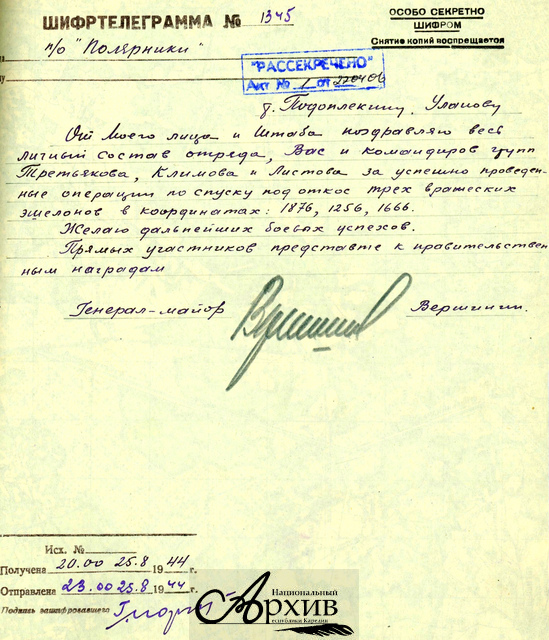 ШИФРТЕЛЕГРАММА № 1345
ОСОБО СЕКРЕТНО
ШИФРОМ
Снятие копий воспрещается
п/о "Полярники"
"РАССЕКРЕЧЕНО"
Акт № 1 от
т. Подоплекину, Уланову
От моего лица и Штаба поздравляю весь
личный состав отряда, Вас и командиров групп
Третьякова, Климова и Листова за успешно проведен-
ные операции по спуску под откос трех вражеских
эшелонов в координатах: 1876, 1256, 1666.
Желаю дальнейших боевых успехов.
Прямых участников представте к правительствен-
ным наградам
Генерал-майор
Вершинин.
Исх. №
Получена 20.00 25.8 1944 г.
Отправлена 23.00 25.8 1944 г.
Подпись зашифровавшего
Национальный
АРХИВ
Республики Карелия